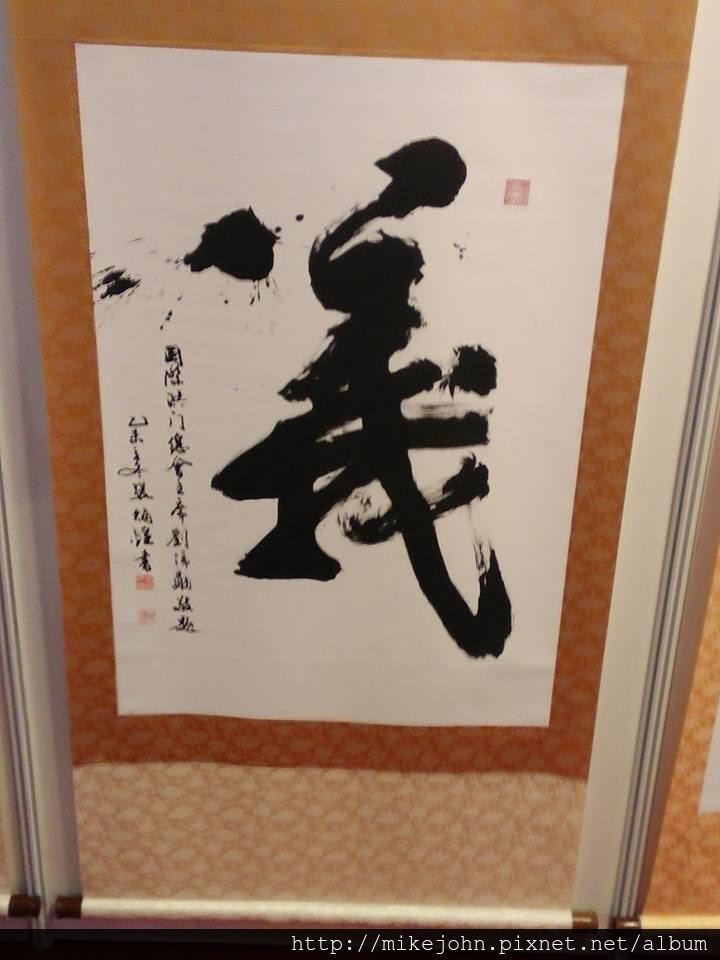 義
國際洪门總會主席劉沛勛敬題
乙未年張炳煌書
http://mikejohn.pixnet.net/album